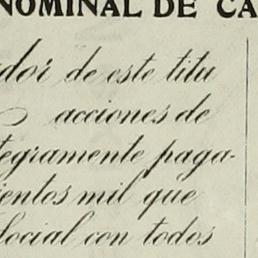 NOMINAL DE CA
ador de este titu
acciones de
tegramente paga-
ientos mil que
Social con todos